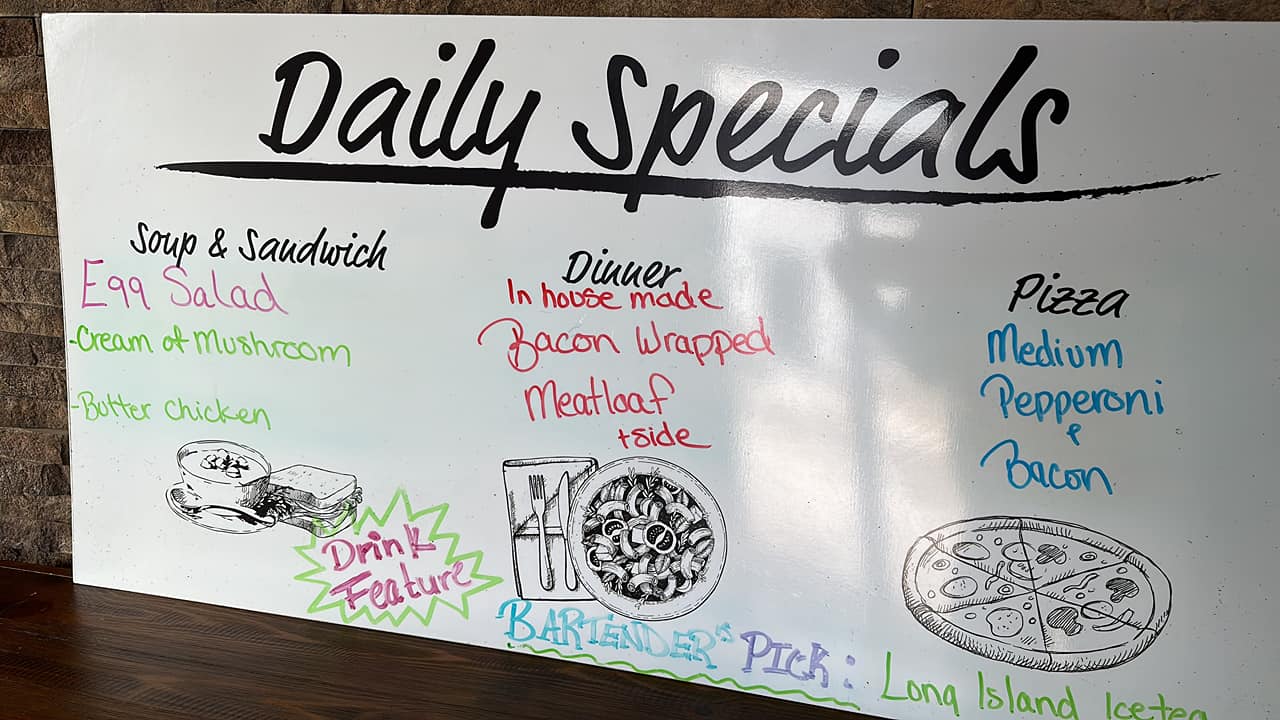 Daily Specials
Soup & Sandwich
Egg Salad
-Cream of Mushroom
-Butter Chicken
Dinner
In house made
Bacon Wrapped
Meatloaf
+side
Pizza
Medium
Pepperoni
&
Bacon
Drink
Feature
BARTENDER'S PICK:
Long Island Icetea